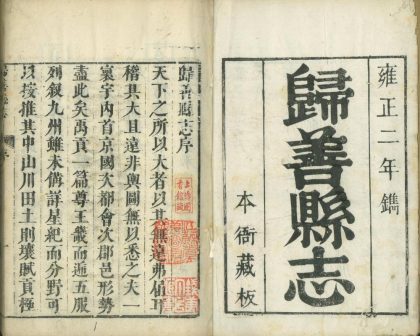 雍正二年鐫
歸善縣志
本衙藏板
歸善縣志序
天下之所以大者以其無遠弗屆耳
稽具大且遠非輿圖無以悉之夫一
寰宇內首京國次都會次郡邑形勢
盡此矣禹貢一篇尊王畿而通五服
列敘九州雖未備詳星紀而分野可
以按推其中山川田土則壤賦貢極